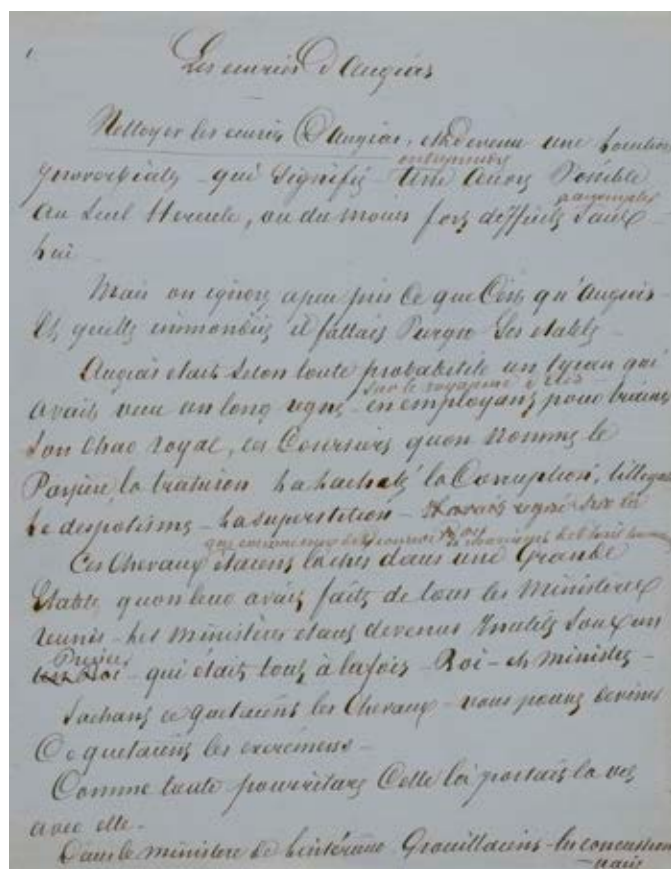 1
Les ecuries D'Augias
Nettoyer les ecuries D'Augias, est devenu une locution
entreprise
proverbiale qui signifie une Possible
payemples
au seul Hercule, ou du moins fort difficile sans
lui
Mais on ignore a peu pres ce que C'est qu'Augias
Et quelles immondices il fallait Purger Ses etables
Augias etait selon toute probabilite un tyran qui
sur le royaume
avait un long regne en employant pour trainer
son char royal, ces Coursiers qu'on Nomme le
Parjure, la trahison la lachete la Corruption,
Le despotisme La superstition Il avait regné sur
Ces Chevaux etaient lachés dans une Grande
Etable qu'on leur avait faite de tous les Ministeres
reunis Les Ministeres etant devenus Inutiles Sous un
Roi qui était tout à la fois Roi et Ministre
Sachant ce qu'etaient les Chevaux vous pouvez deviner
Ce qu'etaient les excremens
Comme toute pourriture Celle la portait la vie
avec elle.
Dans le ministere de L'interieur Grouillaient les concussion
naires